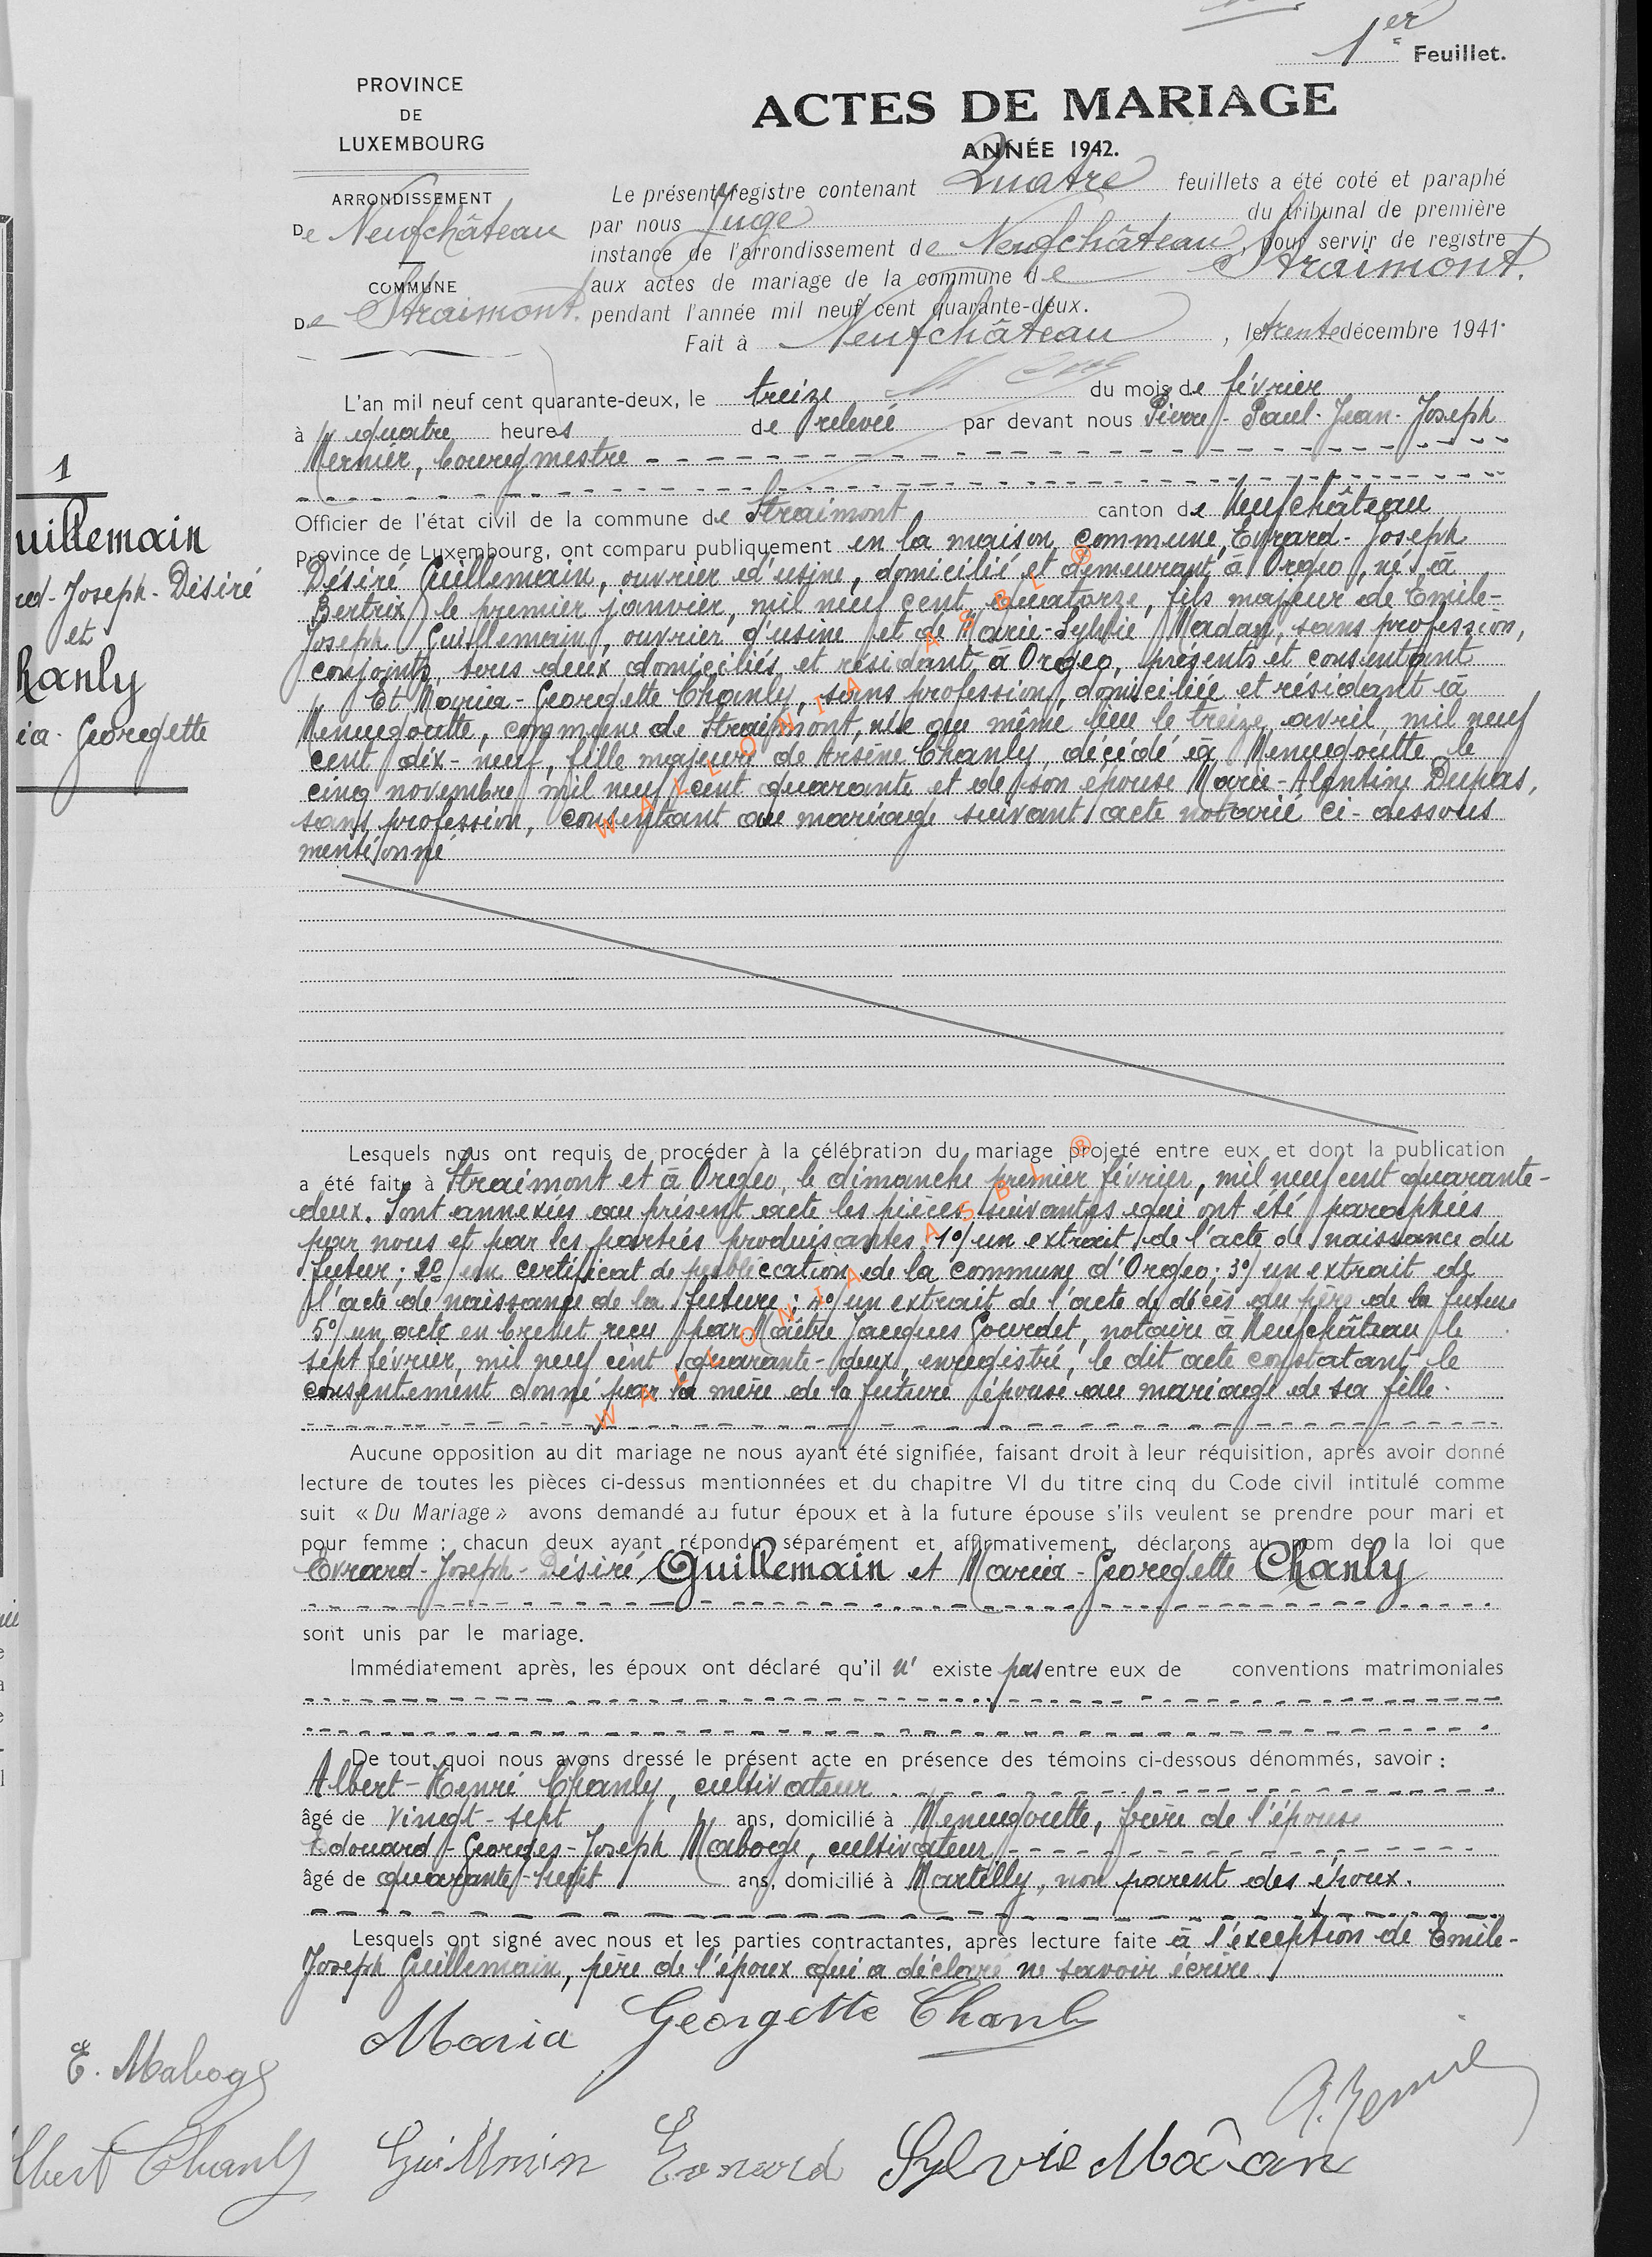 1er Feuillet.
PROVINCE
DE
LUXEMBOURG
ARRONDISSEMENT
De Neufchâteau
COMMUNE
De Straimont.
ACTES DE MARIAGE
ANNÉE 1942.
Le présent registre contenant Quatre feuillets a été coté et paraphé
par nous Juge du tribunal de première
instance de l'arrondissement de Neufchâteau, pour servir de registre
aux actes de mariage de la commune de Straimont.
pendant l'année mil neuf cent quarante-deux.
Fait à Neufchâteau, le trente décembre 1941.
L'an mil neuf cent quarante-deux, le treize du mois de février
à quatre heures de relevée par devant nous Pierre-Paul-Jean-Joseph
Mernier, bourgmestre
Officier de l'état civil de la commune de Straimont canton de Neufchâteau
province de Luxembourg, ont comparu publiquement en la maison commune, Evrard-Joseph
Désiré Guillemain, ouvrier d'usine, domicilié et demeurant à Orgeo, né à
Bertrix, le premier janvier, mil neuf cent quatorze, fils majeur de Emile-
Joseph Guillemain, ouvrier d'usine et de Marie-Sylvie Madan, sans profession,
conjoints, tous deux domiciliés et résidant à Orgeo, présents et consentant
Et Maria-Georgette Chanly, sans profession, domiciliée et résidant à
Menugoutte, commune de Straimont, née au même lieu le treize avril, mil neuf
cent dix-neuf, fille majeure de Arsène Chanly, décédé à Menugoutte le
cinq novembre mil neuf cent quarante et de son épouse Marie-Alphonsine Dupas,
sans profession, consentant au mariage suivant acte notarié ci-dessous
mentionné
1
uillemain
rd-Joseph-Désiré
et
hanly
ia-Georgette
Lesquels nous ont requis de procéder à la célébration du mariage projeté entre eux et dont la publication
a été faite à Straimont et à Orgeo, le dimanche premier février, mil neuf cent quarante-
deux. Sont annexées au présent acte les pièces suivantes qui ont été paraphées
par nous et par les parties produisantes 1º/ un extrait de l'acte de naissance du
futur; 2º/ un certificat de publication de la commune d'Orgeo; 3º/ un extrait de
l'acte de naissance de la future; 4º/ un extrait de l'acte de décès du père de la future
5º/ un acte en brevet reçu par Maître Jacques Gourdet, notaire à Neufchâteau le
sept février, mil neuf cent quarante-deux, enregistré, le dit acte constatant le
consentement donné par la mère de la future épouse au mariage de sa fille.
WALLONIA ASBL ®
WALLONIA ASBL ®
Aucune opposition au dit mariage ne nous ayant été signifiée, faisant droit à leur réquisition, après avoir donné
lecture de toutes les pièces ci-dessus mentionnées et du chapitre VI du titre cinq du Code civil intitulé comme
suit « Du Mariage » avons demandé au futur époux et à la future épouse s'ils veulent se prendre pour mari et
pour femme ; chacun deux ayant répondu séparément et affirmativement, déclarons au nom de la loi que
Evrard-Joseph-Désiré Guillemain et Maria-Georgette Chanly
sont unis par le mariage.
Immédiatement après, les époux ont déclaré qu'il n'existe pas entre eux de conventions matrimoniales
De tout quoi nous avons dressé le présent acte en présence des témoins ci-dessous dénommés, savoir :
Albert-Henri Chanly, cultivateur
âgé de vingt-sept ans, domicilié à Menugoutte, frère de l'épouse
Edouard-Georges-Joseph Maboge, cultivateur
âgé de quarante-huit ans, domicilié à Martilly, non parent des époux.
Lesquels ont signé avec nous et les parties contractantes, après lecture faite à l'exception de Emile-
Joseph Guillemain, père de l'époux qui a déclaré ne savoir écrire.
Maria Georgette Chanly
E. Maboge
lbert Chanly Guillmin Evrard Sylvie Madan